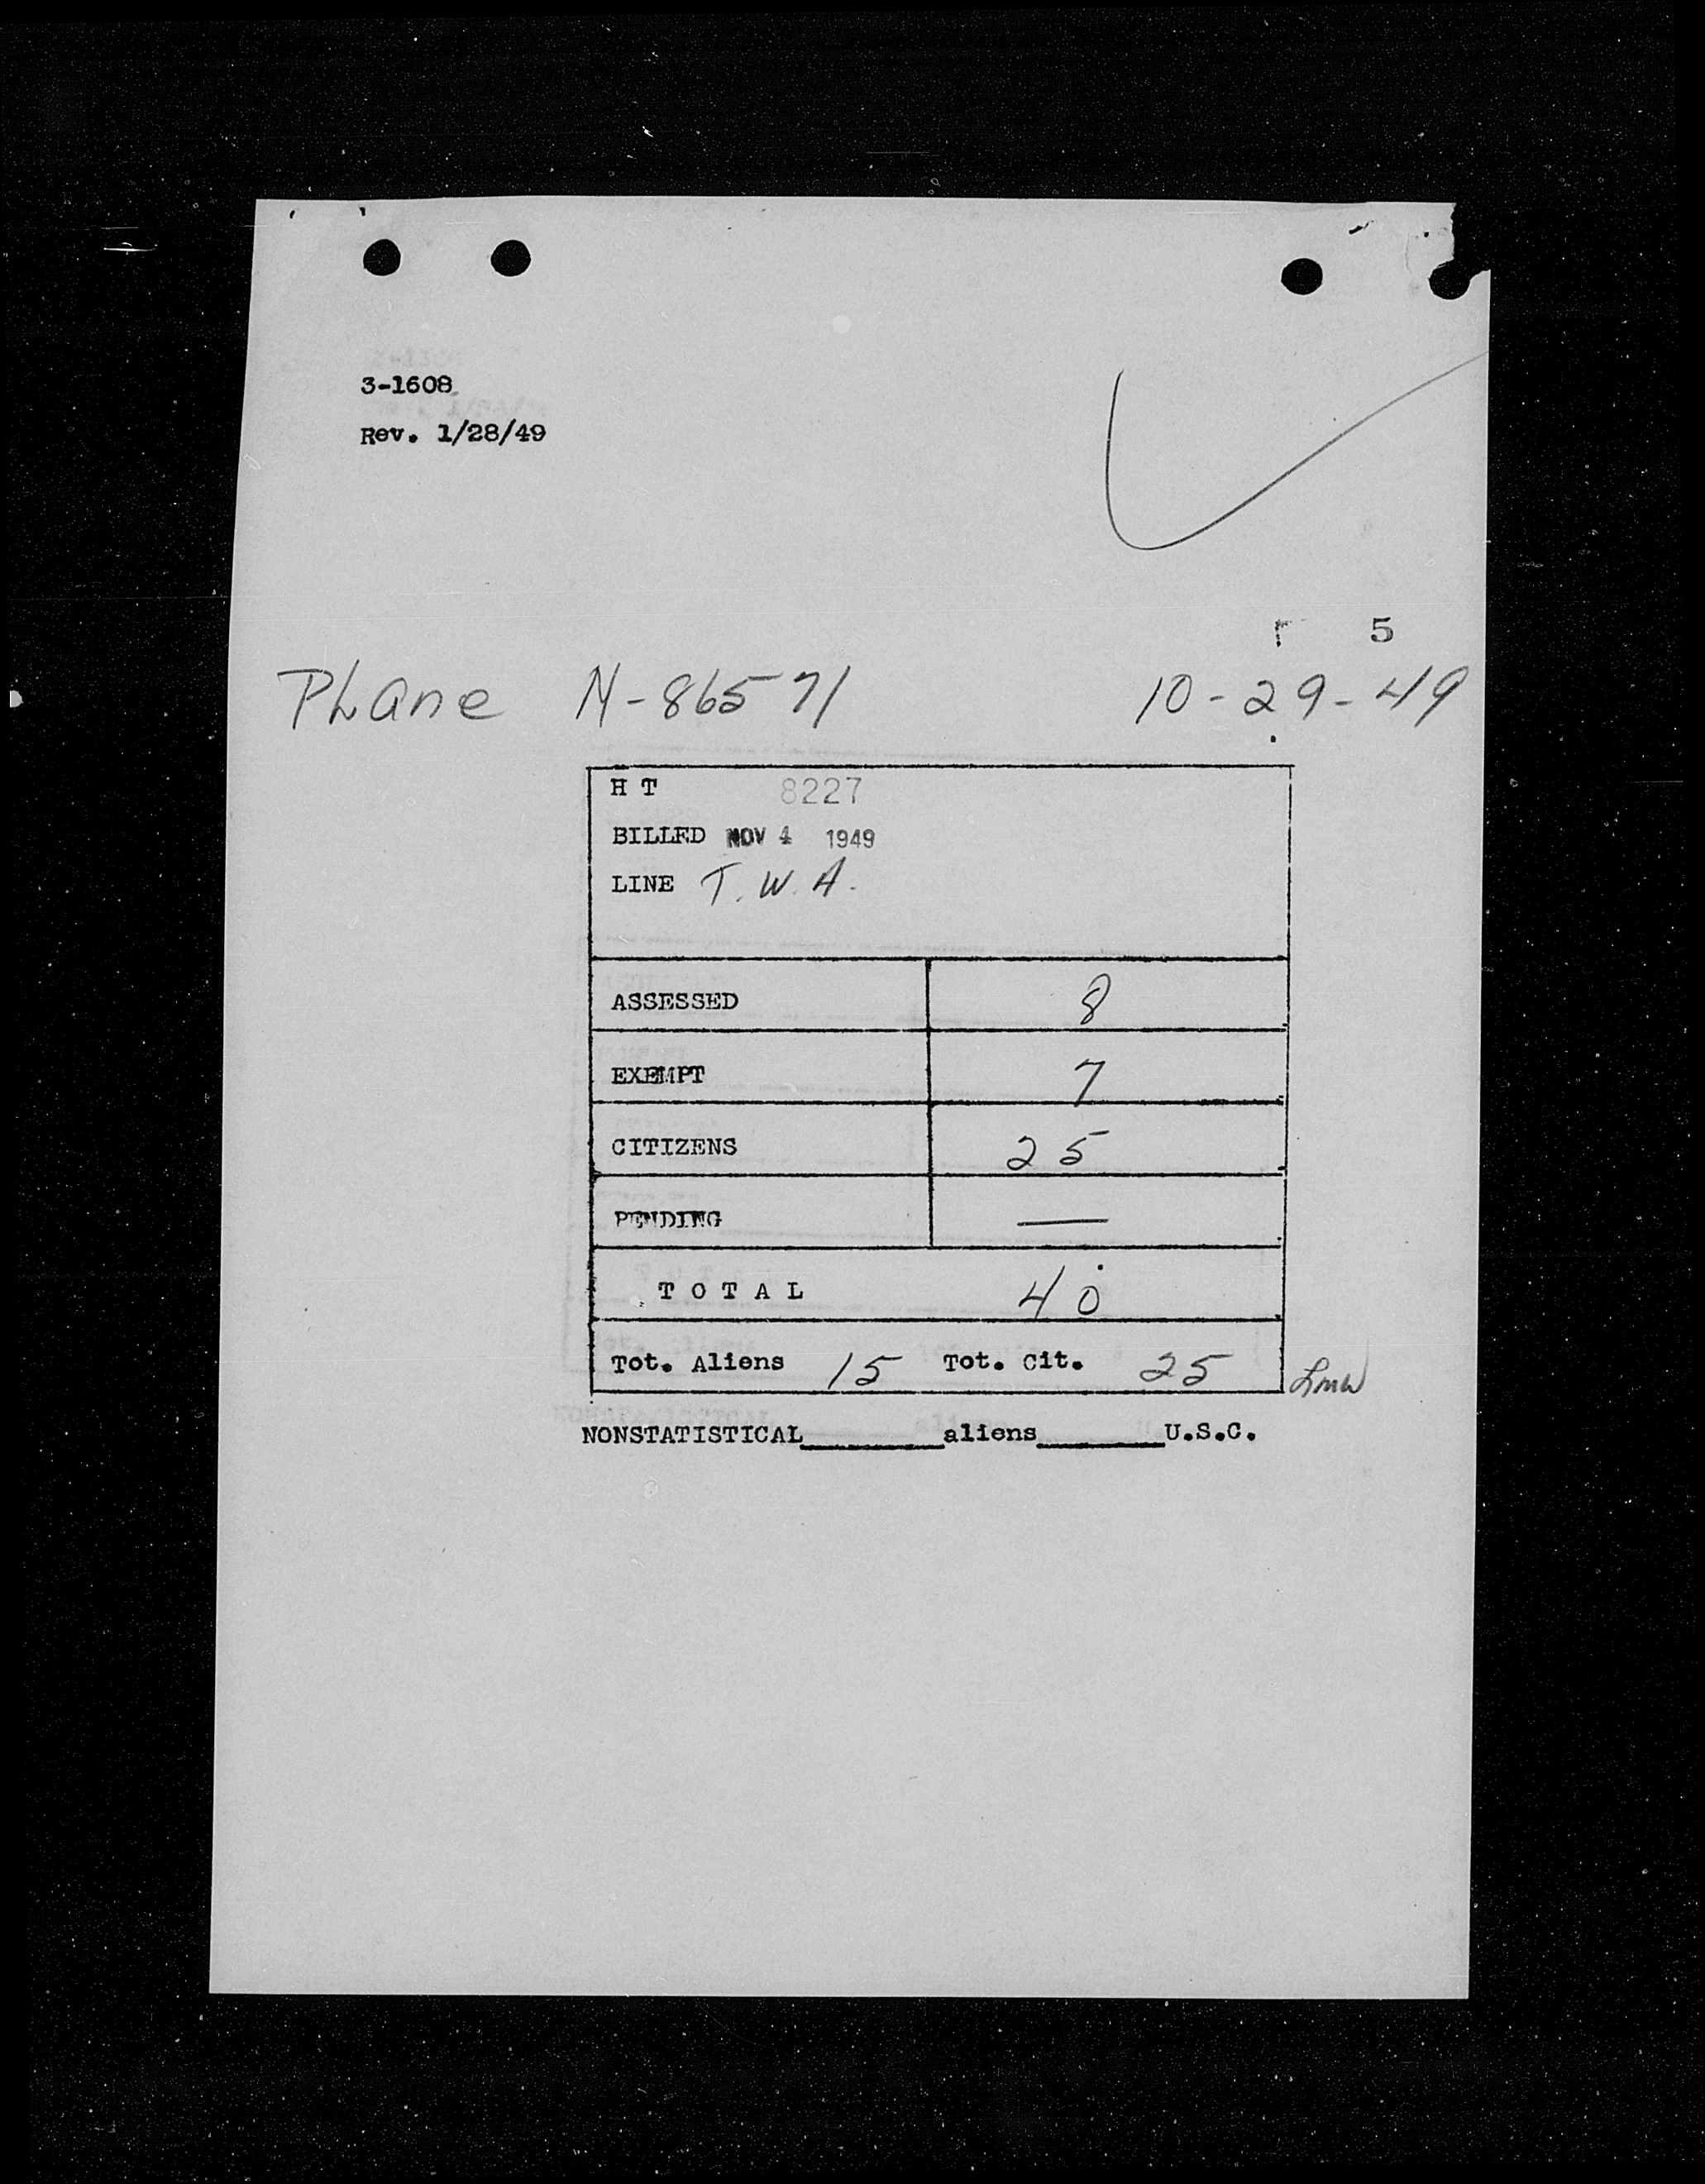 3-1608
Rev. 1/28/49
5
PLane N-86571 10-29-49
H T 8227
BILLED NOV 4 1949
LINE T.W.A.
ASSESSED 8
EXEMPT 7
CITIZENS 25
PENDING —
TOTAL 40
Tot. Aliens 15 Tot. Cit. 25 LMW
NONSTATISTICAL________aliens_______U.S.C.